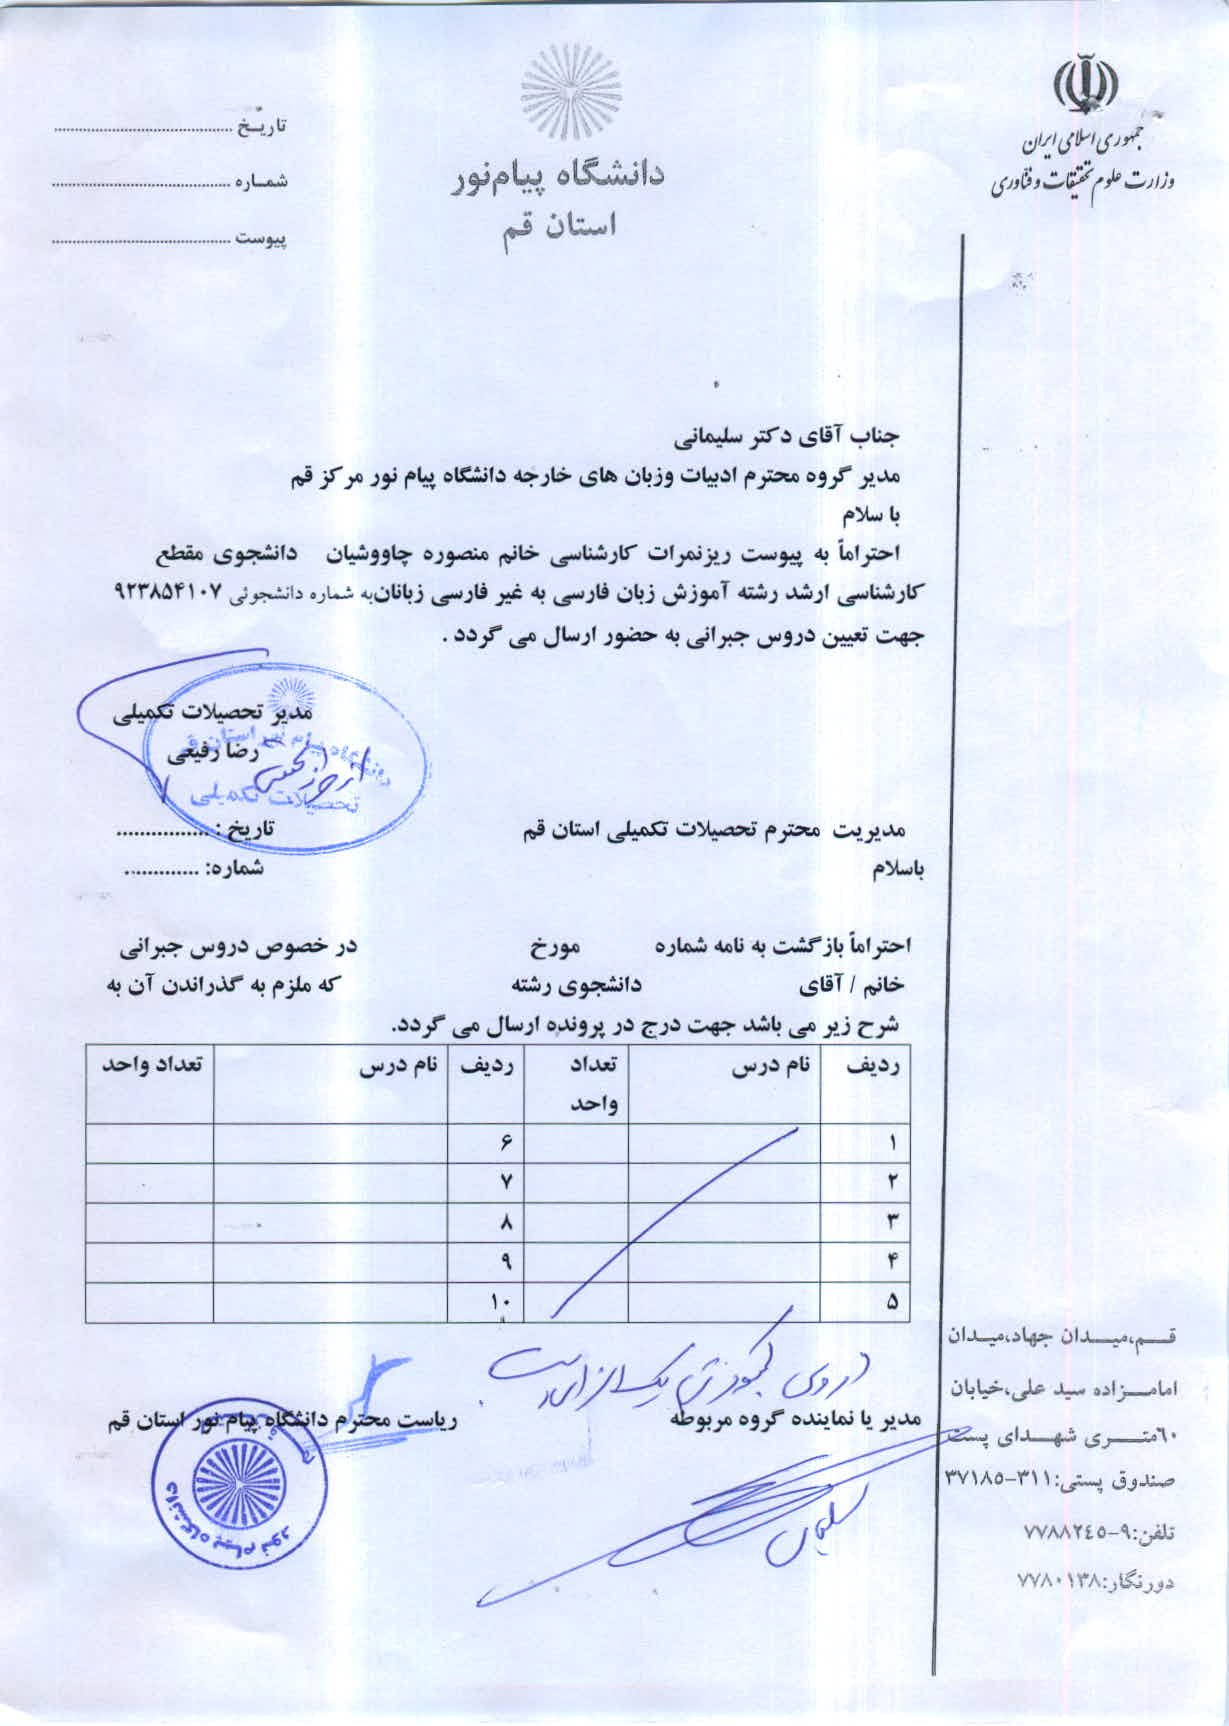 جمهوری اسلامی ایران
وزارت علوم تحقیقات و فناوری
دانشگاه پیام‌نور
استان قم
تاریـخ ..........................................
شمـاره ..........................................
پیوست ..........................................
جناب آقای دکتر سلیمانی
مدیر گروه محترم ادبیات وزبان های خارجه دانشگاه پیام نور مرکز قم
با سلام
احتراماً به پیوست ریزنمرات کارشناسی خانم منصوره چاووشیان دانشجوی مقطع
کارشناسی ارشد رشته آموزش زبان فارسی به غیر فارسی زبانان‌به شماره دانشجوئی ۹۲۳۸۵۴۱۰۷
جهت تعیین دروس جبرانی به حضور ارسال می گردد .
مدیر تحصیلات تکمیلی
رضا رفیعی
دانشگاه پیام نور استان قم
تحصیلات تکمیلی
مدیریت محترم تحصیلات تکمیلی استان قم
تاریخ : ................
باسلام
شماره: .............
احتراماً بازگشت به نامه شماره مورخ در خصوص دروس جبرانی
خانم / آقای دانشجوی رشته که ملزم به گذراندن آن به
شرح زیر می باشد جهت درج در پرونده ارسال می گردد.
ردیف نام درس تعداد واحد ردیف نام درس تعداد واحد
۱ ۶
۲ ۷
۳ ۸
۴ ۹
۵ ۱۰
مدیر یا نماینده گروه مربوطه
ریاست محترم دانشگاه پیام نور استان قم
دانشگاه پیام نور
سلیمانی
قـــم،میــدان جهاد،میـدان
امامـــزاده سید علی،خیابان
٦۰متـــری شهــدای پست
صندوق پستی:۳۱۱-۳۷۱۸٥
تلفن:۹-۷۷۸۸۲٤٥
دورنگار:۷۷۸۰۱۳۸